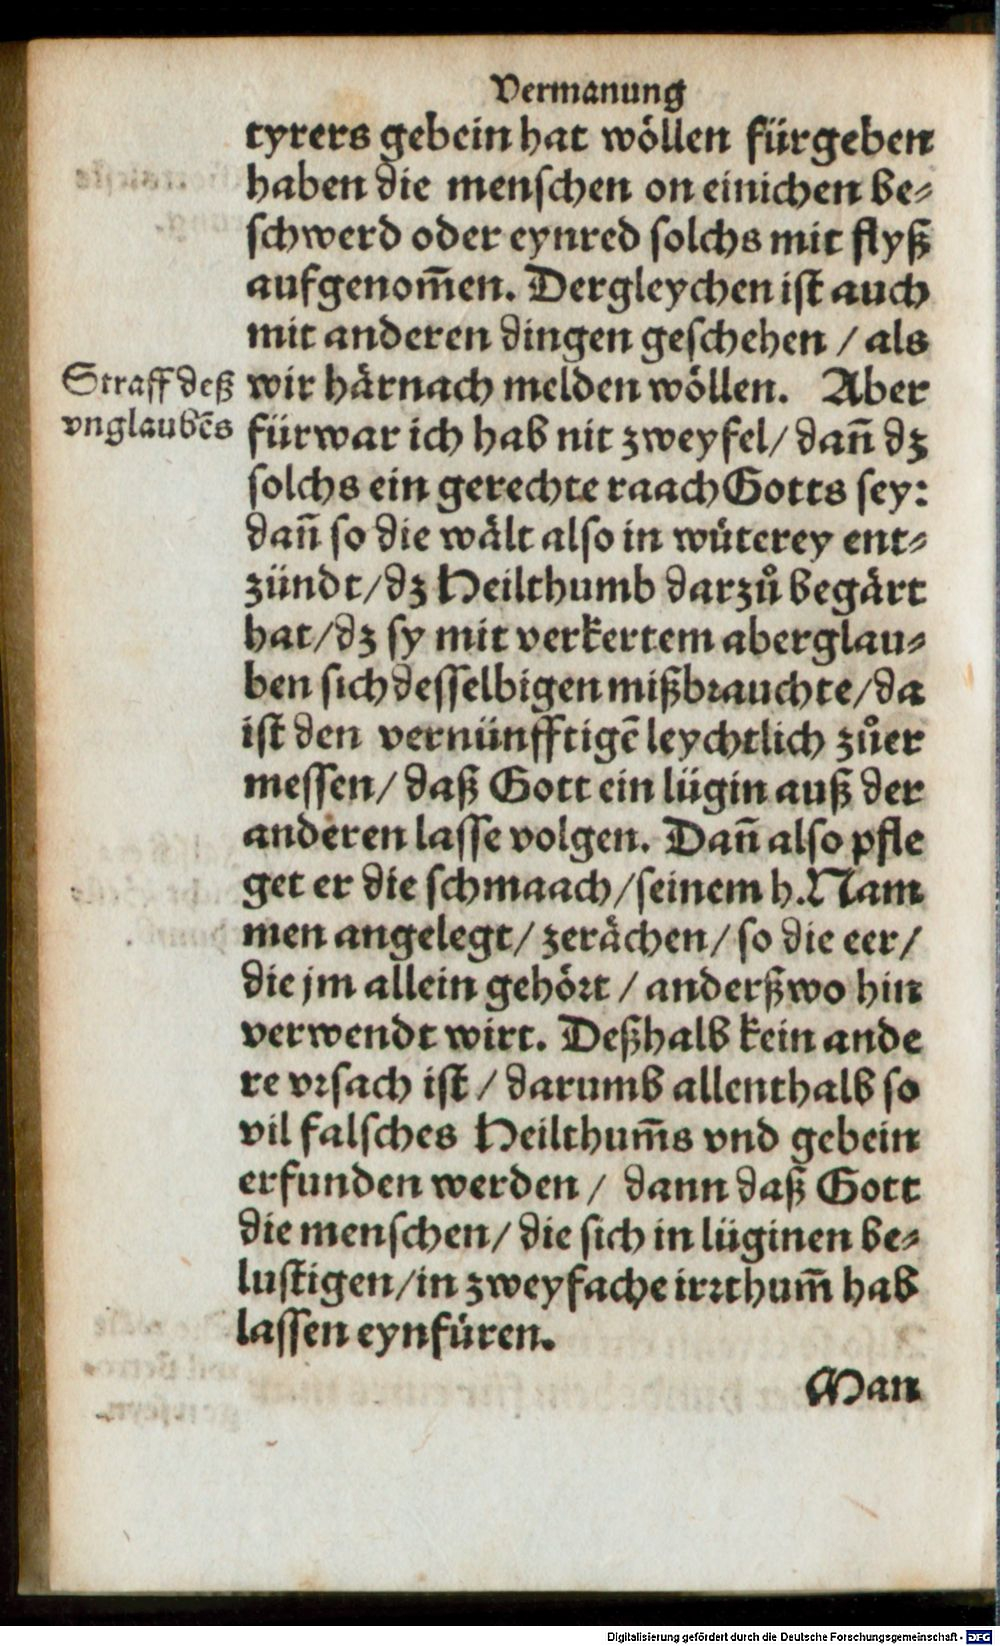 Vermanung
tyrers gebein hat wöllen fürgeben
haben die menschen on einichen be⸗
schwerd oder eynred solchs mit flyß
aufgenom̄en. Dergleychen ist auch
mit anderen dingen geschehen / als
Straff deß
vnglaubēs
wir härnach melden wöllen. Aber
fürwar ich hab nit zweyfel/ dan̄ dz
solchs ein gerechte raach Gotts sey:
dan̄ so die wält also in wüterey ent⸗
zündt/dz Heilthumb darzů begärt
hat/dz sy mit verkertem aberglau⸗
ben sich desselbigen mißbrauchte/da
ist den vernünfftigē leychtlich zůer
messen/ daß Gott ein lügin auß der
anderen lasse volgen. Dan̄ also pfle
get er die schmaach/seinem h. Nam
men angelegt/ zerächen/ so die eer/
die jm allein gehört / anderßwo hin
verwendt wirt. Deßhalb kein ande
re vrsach ist / darumb allenthalb so
vil falsches Heilthum̄s vnd gebein
erfunden werden/ dann daß Gott
die menschen/ die sich in lüginen be⸗
lustigen/in zweyfache irrthum̄ hab
lassen eynfüren.
Man
Digitalisierung gefördert durch die Deutsche Forschungsgemeinschaft - DFG